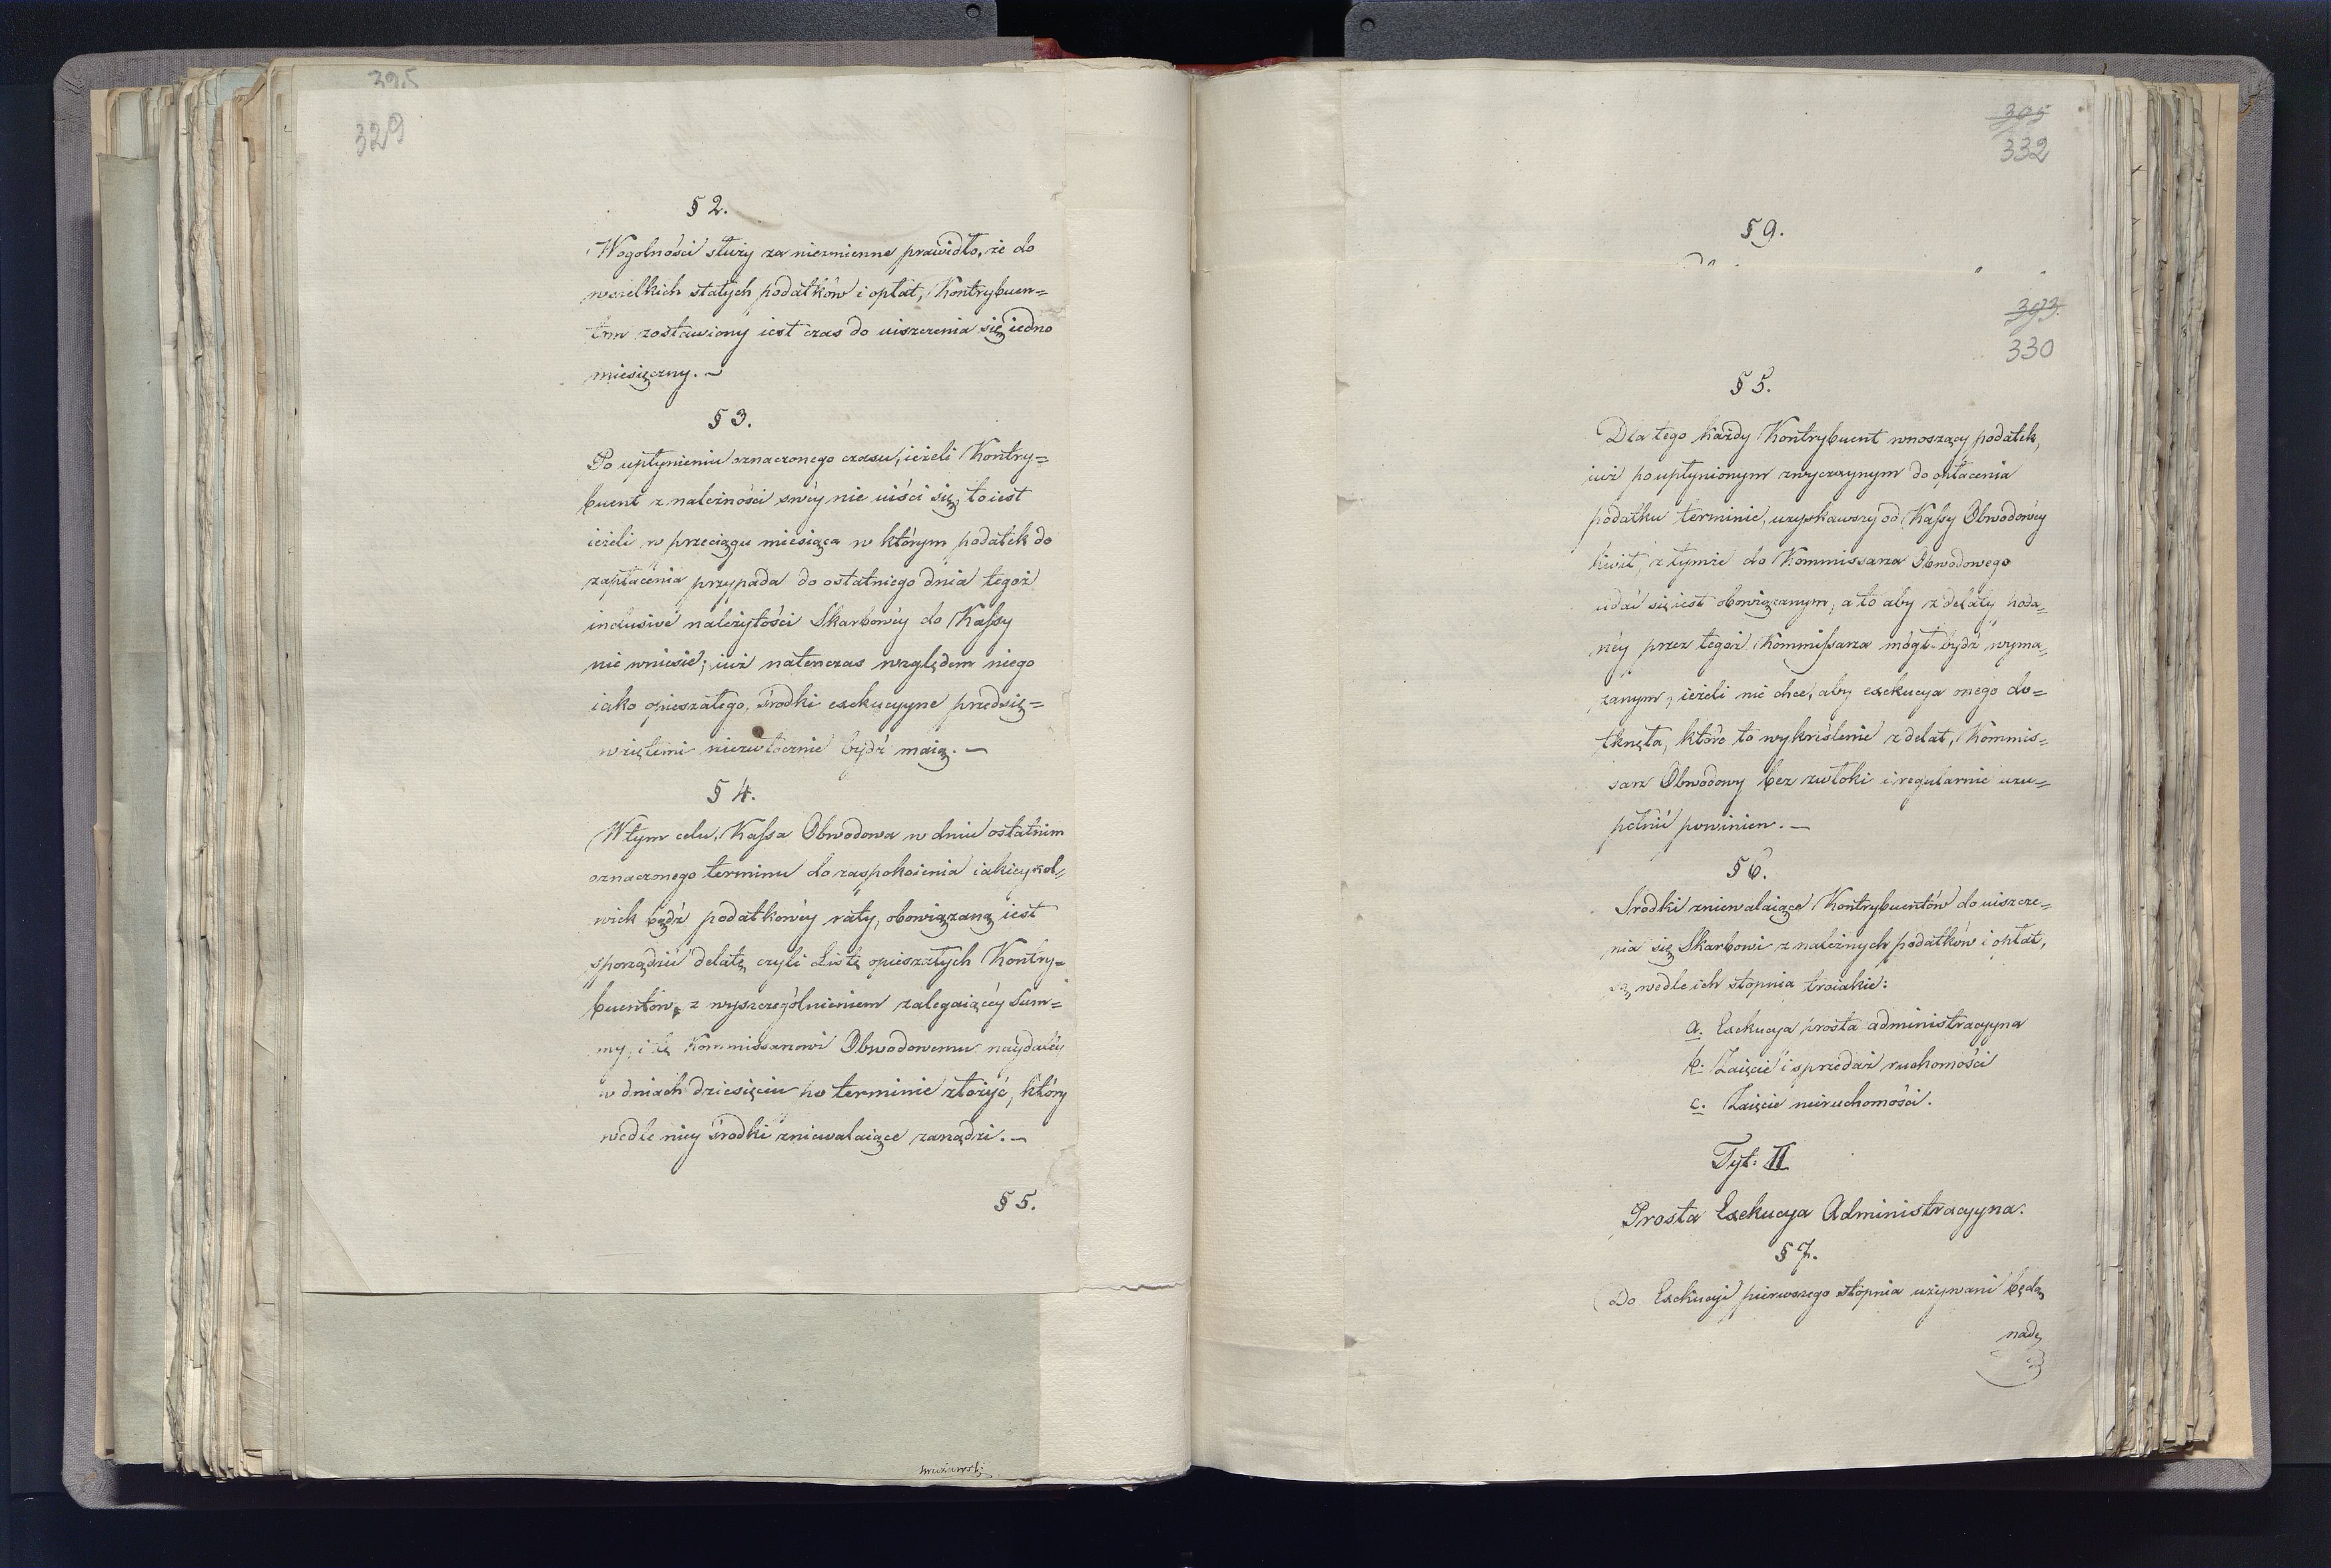 395
329
§ 2.
Wogolności służy za niezmienne prawidło, że do
wszelkich stałych podatków i opłat, Kontrybuen=
tom zostawiony iest czas do uiszczenia się iedno
miesięczny. —
§ 3.
Po upłynieniu oznaczonego czasu, ieżeli Kontry=
buent z należności swéy nie uiści się, to iest
ieżeli w przeciągu miesiąca w którym podatek do
zapłacenia przypada do ostatniego dnia tegoż
inclusive należytości Skarbowéy do Kassy
nie wniesie; iuż natenczas względem niego
iako opieszałego, środki exekucyyne przedsię=
wziętemi niezwłocznie bydź maią. —
§ 4.
W tym celu, Kassa Obwodowa w dniu ostatnim
oznaczonego terminu do zaspokoienia iakieykol=
wiek bądź podatkowéy raty, obowiązaną iest
sporządzić delatę czyli Listę opieszałych Kontry=
buentów z wyszczególnieniem zalegaiącéy Sum=
my, i tę Kommissarzowi Obwodowemu naydaléy
w dniach dziesięciu po terminie złożyć, który
wedle niey środki zniewalaiące zarządzi. —
§ 5.
305
332
§ 9.
393
330
§ 5.
Dla tego każdy Kontrybuent wnoszący podatek,
iuż po upłynionym zwyczaynym do opłacenia
podatku terminie, uzyskawszy od Kassy Obwodowéy
kwit, z tymże do Kommissarza Obwodowego
udać się iest obowiązanym, a to aby z delaty poda=
néy przez tegoż Kommissarza mógł bydź wyma=
zanym, ieżeli nie chce, aby exekucya onego do=
tknęła, które to wykreślenie z delat, Kommis=
sarz Obwodowy bez zwłoki i regularnie uzu=
pełnić powinien. —
§ 6.
Srodki zniewalaiące Kontrybuentów do uiszcze=
nia się Skarbowi z należnych podatków i opłat,
są, wedle ich stopnia troiakie:
a. Exekucya prosta administracyyna
b. Zaięcie i sprzedaż ruchomości
c. Zaięcie nieruchomości.
Tyt: II
Prosta Exekucya Administracyyna.
§ 7.
Do Exekucyi pierwszego stopnia używani będą